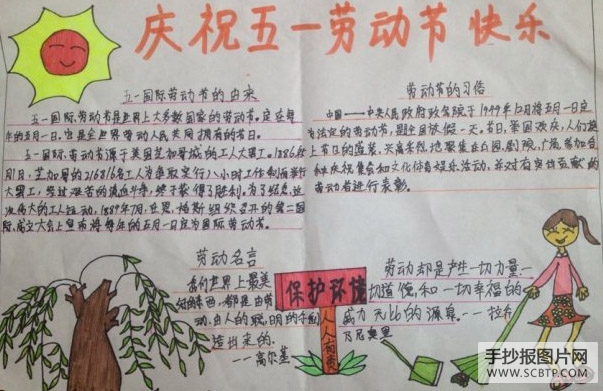 庆祝五一劳动节快乐
五一国际劳动节的由来
五一国际劳动节是世界上大多数国家的劳动节。定在每
年的五月一日。它是全世界劳动人民共同拥有的节日。
五一国际劳动节源于美国芝加哥城的工人大罢工。1886年5
月1日,芝加哥的216816名工人为争取实行八小时工作制而举行
大罢工,经过艰苦的流血斗争,终于获得了胜利。为了纪念这
次伟大的工人运动,1889年7月,在恩格斯组织召开的第二国
际成立大会上宣布将每年的五月一日定为国际劳动节。
劳动节的习俗
中国——中央人民政府政务院于1949年12月将五月一日定
为法定的劳动节,是全国放假一天。节日,举国欢庆,人们换
上节日的盛装,兴高采烈地聚集在公园、剧院、广场,参加各
种庆祝集会和文化体育娱乐活动,并对有突出贡献的
劳动者进行表彰。
劳动名言
我们世界上最美
好的东西,都是由劳
动、由人的聪明的手创
造出来的。
——高尔基
保护环境
人人有责
劳动却是产生一切力量、一
切道德和一切幸福的
威力无比的源泉。——拉·乔
万尼奥里
手抄报图片网
WWW.SCBTP.COM